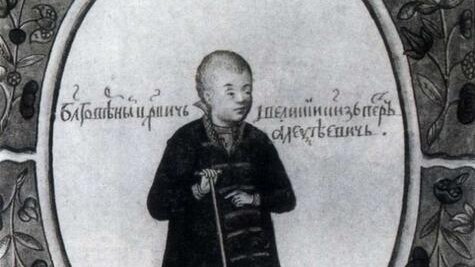 бл҃говѣрный ц҃рвичь і великіи кн҃зь петръ
алеѯѣевичь.